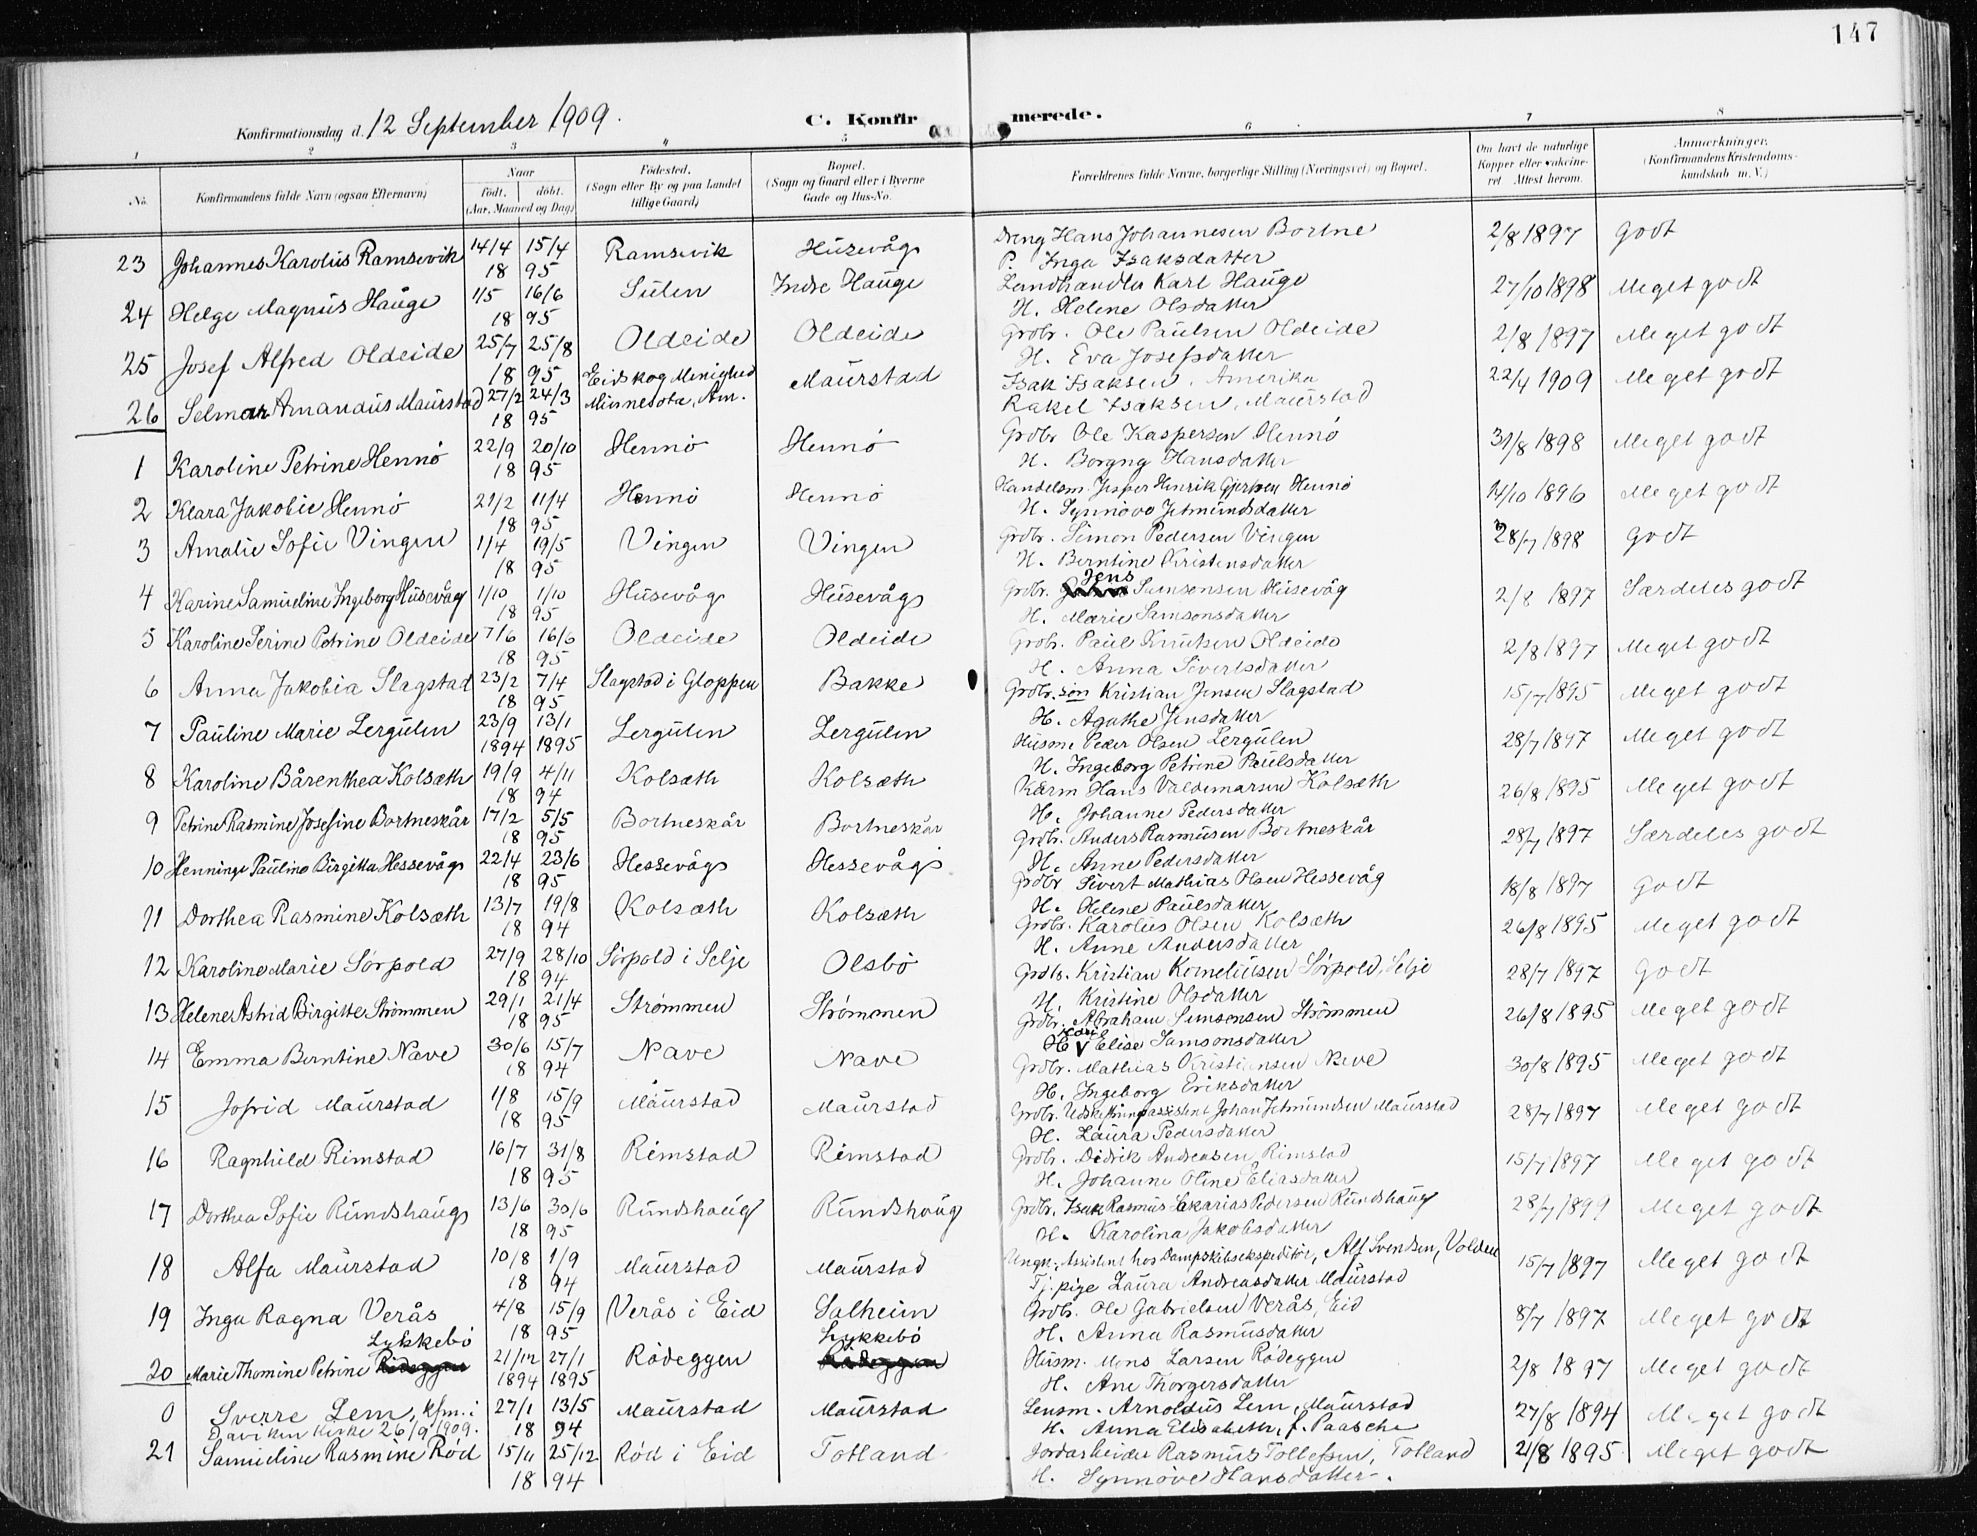 147
Konfirmationsdag d. 12 September 1909.
C. Konfirmerede.
1 2 3 4 5 6 7 8
No. Konfirmandens fulde Navn (ogsaa Efternavn) Naar født. døbt. (Aar, Maaned og Dag) Fødested. (Sogn eller By og paa Landet tillige Gaard) Bopæl. (Sogn og Gaard eller i Byerne Gade og Hus-No. Forældrenes fulde Navne, borgerlige Stilling (Næringsvei) og Bopæl. Om havt de naturlige Kopper eller vakcineret Attest herom. Anmærkninger. (Konfirmandens Kristendomskundskab m. V.)
23 Johannes Karolus Ramsevik 14/4 15/4 Ramsevik Husevåg Dreng Hans Johannesen Bortne 2/8 1897 godt
18 95 P. Inga Isaksdatter
24 Helge Magnus Hauge 1/5 16/6 Sulen Indre Hauge Landhandler Karl Hauge 27/10 1898 Meget godt
18 95 H. Helene Olsdatter
25 Josef Alfred Oldeide 25/7 25/8 Oldeide Oldeide Grdbr. Ole Paulsen Oldeide 2/8 1897 Meget godt
18 95 H. Eva Josefsdatter
26 Selmar Amandus Maurstad 27/2 24/3 Eidskog Menighed Minnesota, Am. Maurstad Isak Isaksen, Amerika 22/4 1909 Meget godt
18 95 Rakel Isaksen, Maurstad
1 Karoline Petrine Hennø 22/9 20/10 Hennø Hennø Grdbr Ole Kaspersen Hennø 31/8 1898 Meget godt
18 95 H. Borgny Hansdatter
2 Klara Jakobie Hennø 21/2 11/4 Hennø Hennø Handelsm. Jesper Henrik Gjertsen Hennø 14/10 1896 Meget godt
18 95 H. Synnøve Jetmundsdatter
3 Amalie Sofie Vingen 1/4 19/5 Vingen Vingen Grdbr. Simon Pedersen Vingen 28/7 1898 godt
18 95 H. Berntine Kristensdatter
4 Karine Samueline Ingeborg Husevåg 1/10 1/10 Husevåg Husevåg Grdbr. Jens Samsonsen Husevåg 2/8 1897 Særdeles godt
18 95 H. Marie Samsonsdatter
5 Karoline Serine Petrine Oldeide 7/6 16/6 Oldeide Oldeide Grdbr. Paul Knutsen Oldeide 2/8 1897 Meget godt
18 95 H. Anna Sivertsdatter
6 Anna Jakobia Slagstad 23/2 7/4 Slagstad i Gloppen Bakke Grdbr. søn Kristian Jensen Slagstad 15/7 1895 Meget godt
18 95 H. Agathe Jensdatter
7 Pauline Marie Lergulen 23/9 13/1 Lergulen Lergulen Husm. Peder Olsen Lergulen 28/7 1897 Meget godt
1894 1895 H. Ingeborg Petrine Paulsdatter
8 Karoline Bårenthea Kolsæth 19/9 4/11 Kolsæth Kolsæth Kårm Hans Valdemarsen Kolsæth 26/8 1895 Meget godt
18 94 H. Johanne Pedersdatter
9 Petrine Rasmine Josefine Bortneskår 17/2 5/5 Bortneskår Bortneskår Grdbr. Anders Rasmusen Bortneskår 28/7 1897 Særdeles godt
18 95 H. Anne Pedersdatter
10 Henninge Pauline Birgitta Hessevåg 22/4 23/6 Hessevåg Hessevåg Grdbr Sivert Mathias Olsen Hessevåg 18/8 1897 godt
18 95 H. Helene Paulsdatter
11 Dorthea Rasmine Kolsæth 13/7 19/8 Kolsæth Kolsæth Grdbr. Karolus Olsen Kolsæth 26/8 1895 Meget godt
18 94 H. Anne Andersdatter
12 Karoline Marie Sørpold 27/9 28/10 Sørpold i Selje Olsbø Grdbr. Kristian Korneliusen Sørpold, Selje 28/7 1897 godt
18 94 H. Kristine Olsdatter
13 Helene Astrid Birgitte Strømmen 29/1 21/4 Strømmen Strømmen Grdbr. Abraham Simonsen Strømmen 26/8 1895 Meget godt
18 95 H. Kari Elise Samsonsdatter
14 Emma Berntine Nave 30/6 15/7 Nave Nave Grdbr. Mathias Kristiansen Nave 30/8 1895 Meget godt
18 94 H. Ingeborg Eriksdatter
15 Jofrid Maurstad 1/8 15/9 Maurstad Maurstad Grdbr. Udskiftningassistent Johan Jetmundsen Maurstad 28/7 1897 Meget godt
18 95 H. Laura Pedersdatter
16 Ragnhild Rimstad 16/7 31/8 Rimstad Rimstad Grdbr. Didrik Andreasen Rimstad 15/7 1897 Meget godt
18 95 H. Johanne Oline Eliasdatter
17 Dorthea Sofie Rundshaug 13/6 30/6 Rundshaug Rundshaug Grdbr. Isak Rasmus Sakarias Pedersen Rundshaug 28/7 1899 Meget godt
18 95 H. Karolina Jakobsdatter
18 Alfa Maurstad 10/8 1/9 Maurstad Maurstad Ungk. Assistent hos Dampskibsekspeditør, Alf Svendsen, Volden 15/7 1897 Meget godt
18 94 Tj. pige Laura Andreasdatter Maurstad
19 Inga Ragna Verås 4/8 15/9 Verås i Eid Salheim Grdb. Ole Gabrielsen Verås, Eid 8/7 1897 Meget godt
18 95 H. Anna Rasmusdatter
20 Marie Thomine Petrine Rødeggen Lykkebø 21/12 27/1 Rødeggen Lykkebø Rødeggen Husm. Mons Larsen Rødeggen 2/8 1897 Meget godt
1894 1895 H. Ane Thorgersdatter
0 Sverre Lem, kfm. i 27/1 13/5 Maurstad Maurstad Lensm. Arnoldus Lem, Maurstad 27/8 1894 Meget godt
Daviken Kirke 26/9 1909. 18 94 H. Anna Elisabeth, f. Paasche
21 Samueline Rasmine Rød 15/11 25/12 Rød i Eid Totland Jordarbeider Rasmus Tollefsen, Totland 21/8 1895 Meget godt
18 94 H. Synnøve Hansdatter